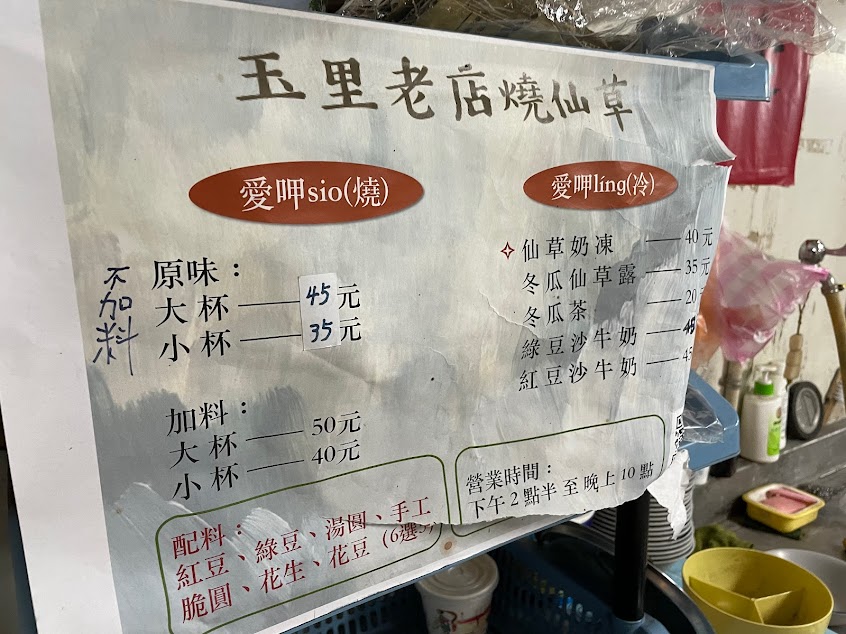 玉里老店燒仙草
愛呷sio(燒)
不加料
原味：
大杯 —— 45元
小杯 —— 35元
加料：
大杯 —— 50元
小杯 —— 40元
配料：
紅豆、綠豆、湯圓、手工
脆圓、花生、花豆（6選
愛呷líng(冷)
✧仙草奶凍 —— 40元
冬瓜仙草露 —— 35元
冬瓜茶 —— 20
綠豆沙牛奶 —— 45
紅豆沙牛奶 —— 45
營業時間：
下午2點半至晚上10點